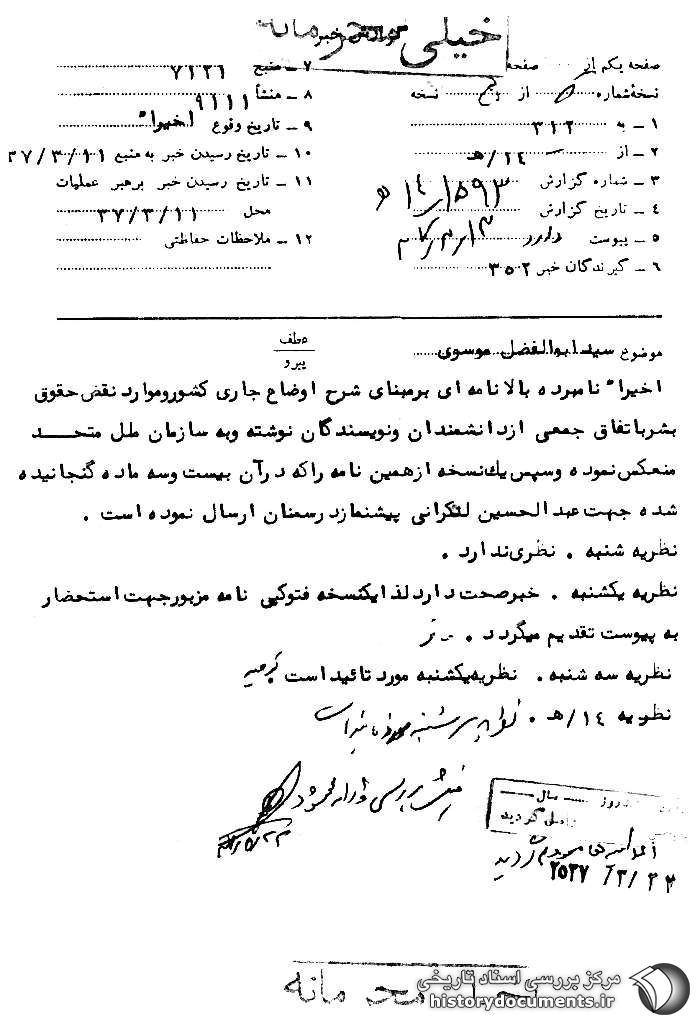 خیلی محرمانه
گزارش خبر
صفحه یکم از صفحه
نسخه شماره از پنج نسخه
۱ ـ به ۳۱۲
۲ ـ از ۱۴/هـ
۳ ـ شماره گزارش ۱۴/۱۵۹۳ هـ
۴ ـ تاریخ گزارش
۵ ـ پیوست دارد
۶ ـ گیرندگان خبر ۳۵۲
۷ ـ منبع ۷۱۲۱
۸ ـ منشأ ۹۱۱۱
۹ ـ تاریخ وقوع اخیراً
۱۰ ـ تاریخ رسیدن خبر به منبع ۳۷/۳/۱۱
۱۱ ـ تاریخ رسیدن خبر برهبر عملیات
محل ۳۷/۳/۱۱
۱۲ ـ ملاحظات حفاظتی
موضوع سیدابوالفضل موسوی
عطف
پیرو
اخیراً نامبرده بالا نامه ای برمبنای شرح اوضاع جاری کشور و موارد نقض حقوق
بشر باتفاق جمعی از دانشمندان و نویسندگان نوشته و به سازمان ملل متحد
منعکس نموده و سپس یک نسخه از همین نامه را که در آن بیست و سه ماده گنجانیده
شده جهت عبدالحسین لنکرانی پیشنماز در سمنان ارسال نموده است .
نظریه شنبه . نظری ندارد .
نظریه یکشنبه . خبر صحت دارد لذا یکنسخه فتوکپی نامه مزبور جهت استحضار
به پیوست تقدیم میگردد .
نظریه سه شنبه . نظریه یکشنبه مورد تائید است
نظریه ۱۴/هـ . نظریه سه شنبه مورد تائید است
روز سال
گردید
۲۵۳۷/۳/۲۲
محرمانه
مرکز بررسی اسناد تاریخی
historydocuments.ir